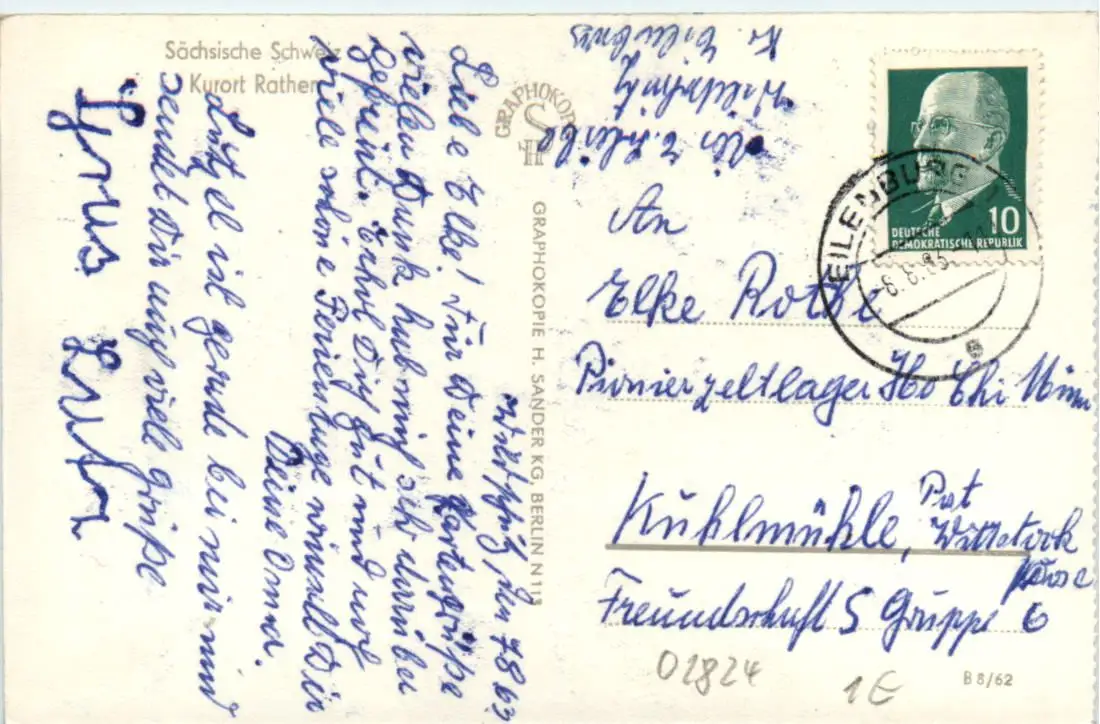 Sächsische Schweiz
Kurort Rathen
den 7 8 63
Liebe Elke! Für Deine Kartengrüße
vielen Dank hab mich sehr darüber
gefreut. Erhol Dich gut und noch
viele schöne Ferientage wünscht Dir
Deine Oma.
ist gerade bei mir und
sendet Dir auch viele Grüße
GRAPHOKOPIE
H S
GRAPHOKOPIE H. SANDER KG, BERLIN N 113
Kr. Eilenburg
An
Elke Rothe
Pionierzeltlager Ho Chi Minn
Kuhlmühle, Pst
Wittstock
Dosse
Freundschaft 5 Gruppe 6
10
DEUTSCHE
DEMOKRATISCHE REPUBLIK
EILENBURG
02824
1E
B 8/62